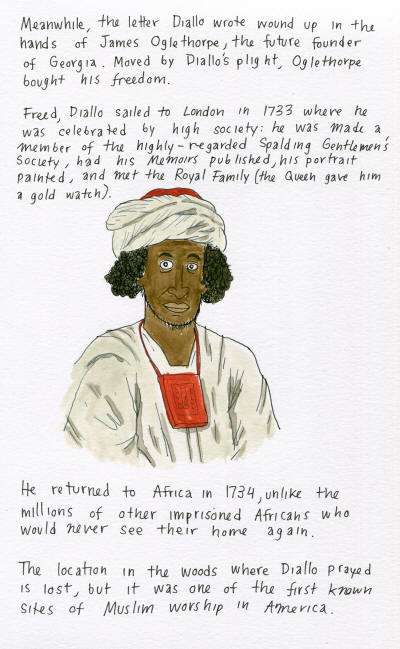 Meanwhile, the letter Diallo wrote wound up in the
hands of James Oglethorpe, the future founder
of Georgia. Moved by Diallo's plight, Oglethorpe
bought his freedom.
Freed, Diallo sailed to London in 1733 where he
was celebrated by high society: he was made a
member of the highly-regarded Spalding Gentlemen's
Society, had his Memoirs published, his portrait
painted, and met the Royal Family (the Queen gave him
a gold watch).
He returned to Africa in 1734, unlike the
millions of other imprisoned Africans who
would never see their home again.
The location in the woods where Diallo prayed
is lost, but it was one of the first known
sites of Muslim worship in America.